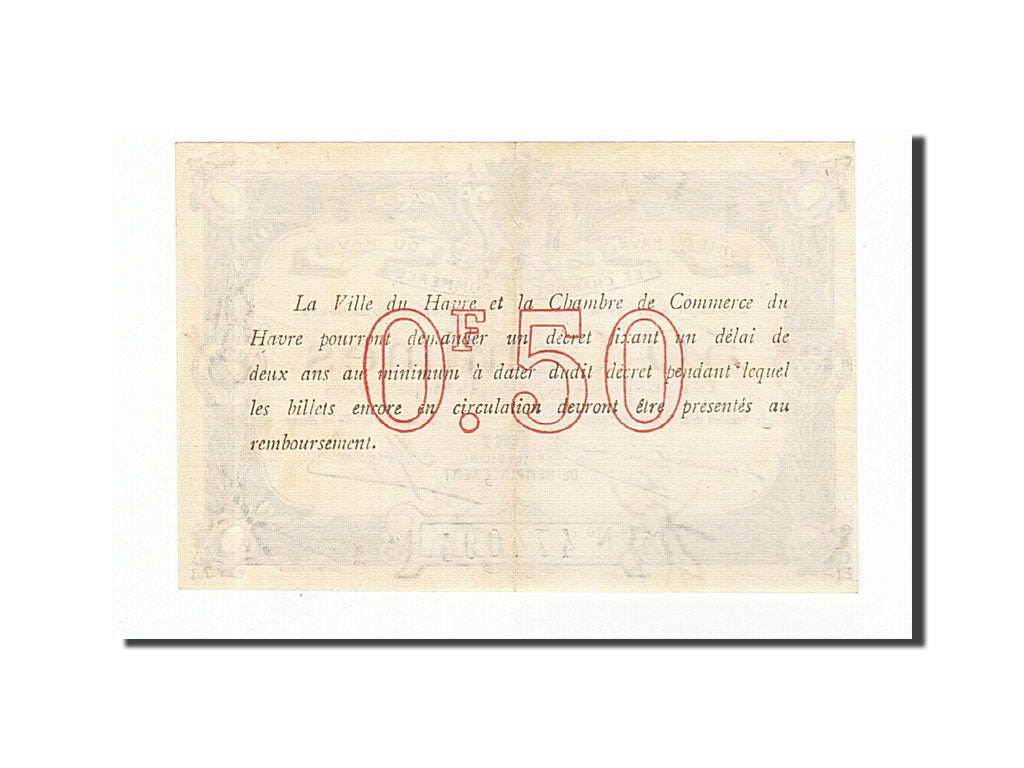 La Ville du Havre et la Chambre de Commerce du
Havre pourront demander un décret fixant un délai de
deux ans au minimum à dater dudit décret pendant lequel
les billets encore en circulation devront être présentés au
remboursement.
0F.50